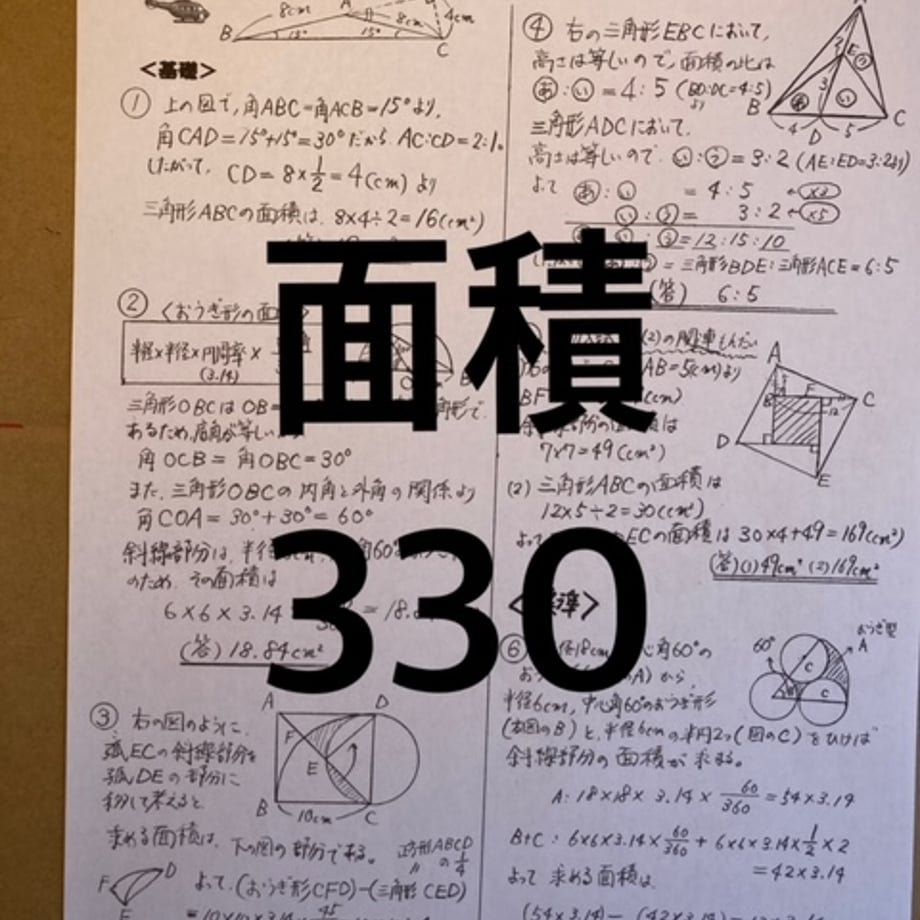 8cm
A
8cm
4cm
B
15°
15°
C
<基礎>
① 上の図で,角ABC=角ACB=15°より,
角CAD=15°+15°=30°だから AC:CD=2:1.
したがって, CD=8×1/2=4(cm)より
三角形ABCの面積は, 8×4÷2=16(cm²)
②
半径×半径×円周率×
(3.14)
三角形OBCは OB=
あるため,底角が等しい
角OCB=角OBC=30°
また,三角形OBCの内角と外角の関係より
角COA=30°+30°=60°
斜線部分は,半径
のため,その面積は
6×6×3.14
(答)18.84cm²
③ 右の図のように,
弧ECの斜線部分を
弧DEの部分に
移して考えると,
求める面積は, 下の図の部分である。
正方形ABCDの1/4
A
D
F
E
B
10cm
C
F
D
E
よって,(おうぎ形CFD)-(三角形CED)
④ 右の三角形EBCにおいて,
高さは等しいので,面積の比は
あ:い=4:5 (BD:DC=4:5)より
三角形ADCにおいて,
高さは等しいので, い:う=3:2 (AE:ED=3:2より)
よって あ:い =4:5 ←×3
い:う= 3:2 ←×5
う=12:15:10
=三角形BDE:三角形ACE=6:5
(答) 6:5
B
4
D
5
C
(2)の関連もんだい
AB=5(cm)より
BF
(cm)
7×7=49(cm²)
(2) 三角形ABCの面積は
12×5÷2=30(cm²)
ECの面積は 30×4+49=169(cm²)
(答)(1)49cm² (2)169cm²
A
C
D
E
面積
330
準>
⑥
径18cm
心角60°の
A)から,
半径6cm,中心角60°のおうぎ形
(右図のB)と,半径6cmの半円2つ(図のC)をひけば
斜線部分の面積が求まる。
60°
おうぎ型
A
C
C
A:18×18×3.14×60/360=54×3.14
B+C:6×6×3.14×60/360+6×6×3.14×1/2×2
=42×3.14
よって 求める面積は